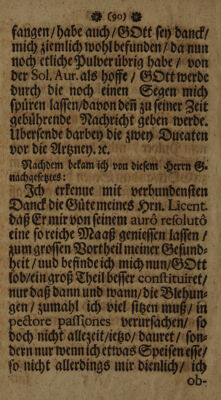 (90)
fangen/habe auch/GOtt sey danck/
mich ziemlich wohl befunden/da nun
noch etliche Pulver übrig habe/ von
der Sol. Aur. als hoffe/ GOtt werde
durch die noch einen Segen mich
spüren lassen/davon deñ zu seiner Zeit
gebührende Nachricht geben werde.
Ubersende darbey die zwey Ducaten
vor die Artzney. ꝛc.
Nachdem bekam ich von diesem Herrn
nachgesetztes:
Ich erkenne mit verbundensten
Danck die Güte meines Hrn. Licent.
daß Er mir von seinem aurô resolutô
eine so reiche Maaß geniessen lassen/
zum grossen Vortheil meiner Gesund-
heit/ und befinde ich mich nun/GOtt
lob/ein groß Theil besser constituiret/
nur daß dann und wann/ die Blehun-
gen/ zumahl ich viel sitzen muß/ in
pectore passiones verursachen/ so
doch nicht allezeit/ietzo/ dauret/ son-
dern nur wenn ich etwas Speisen esse/
so nicht allerdings mir dienlich/ ich
ob-